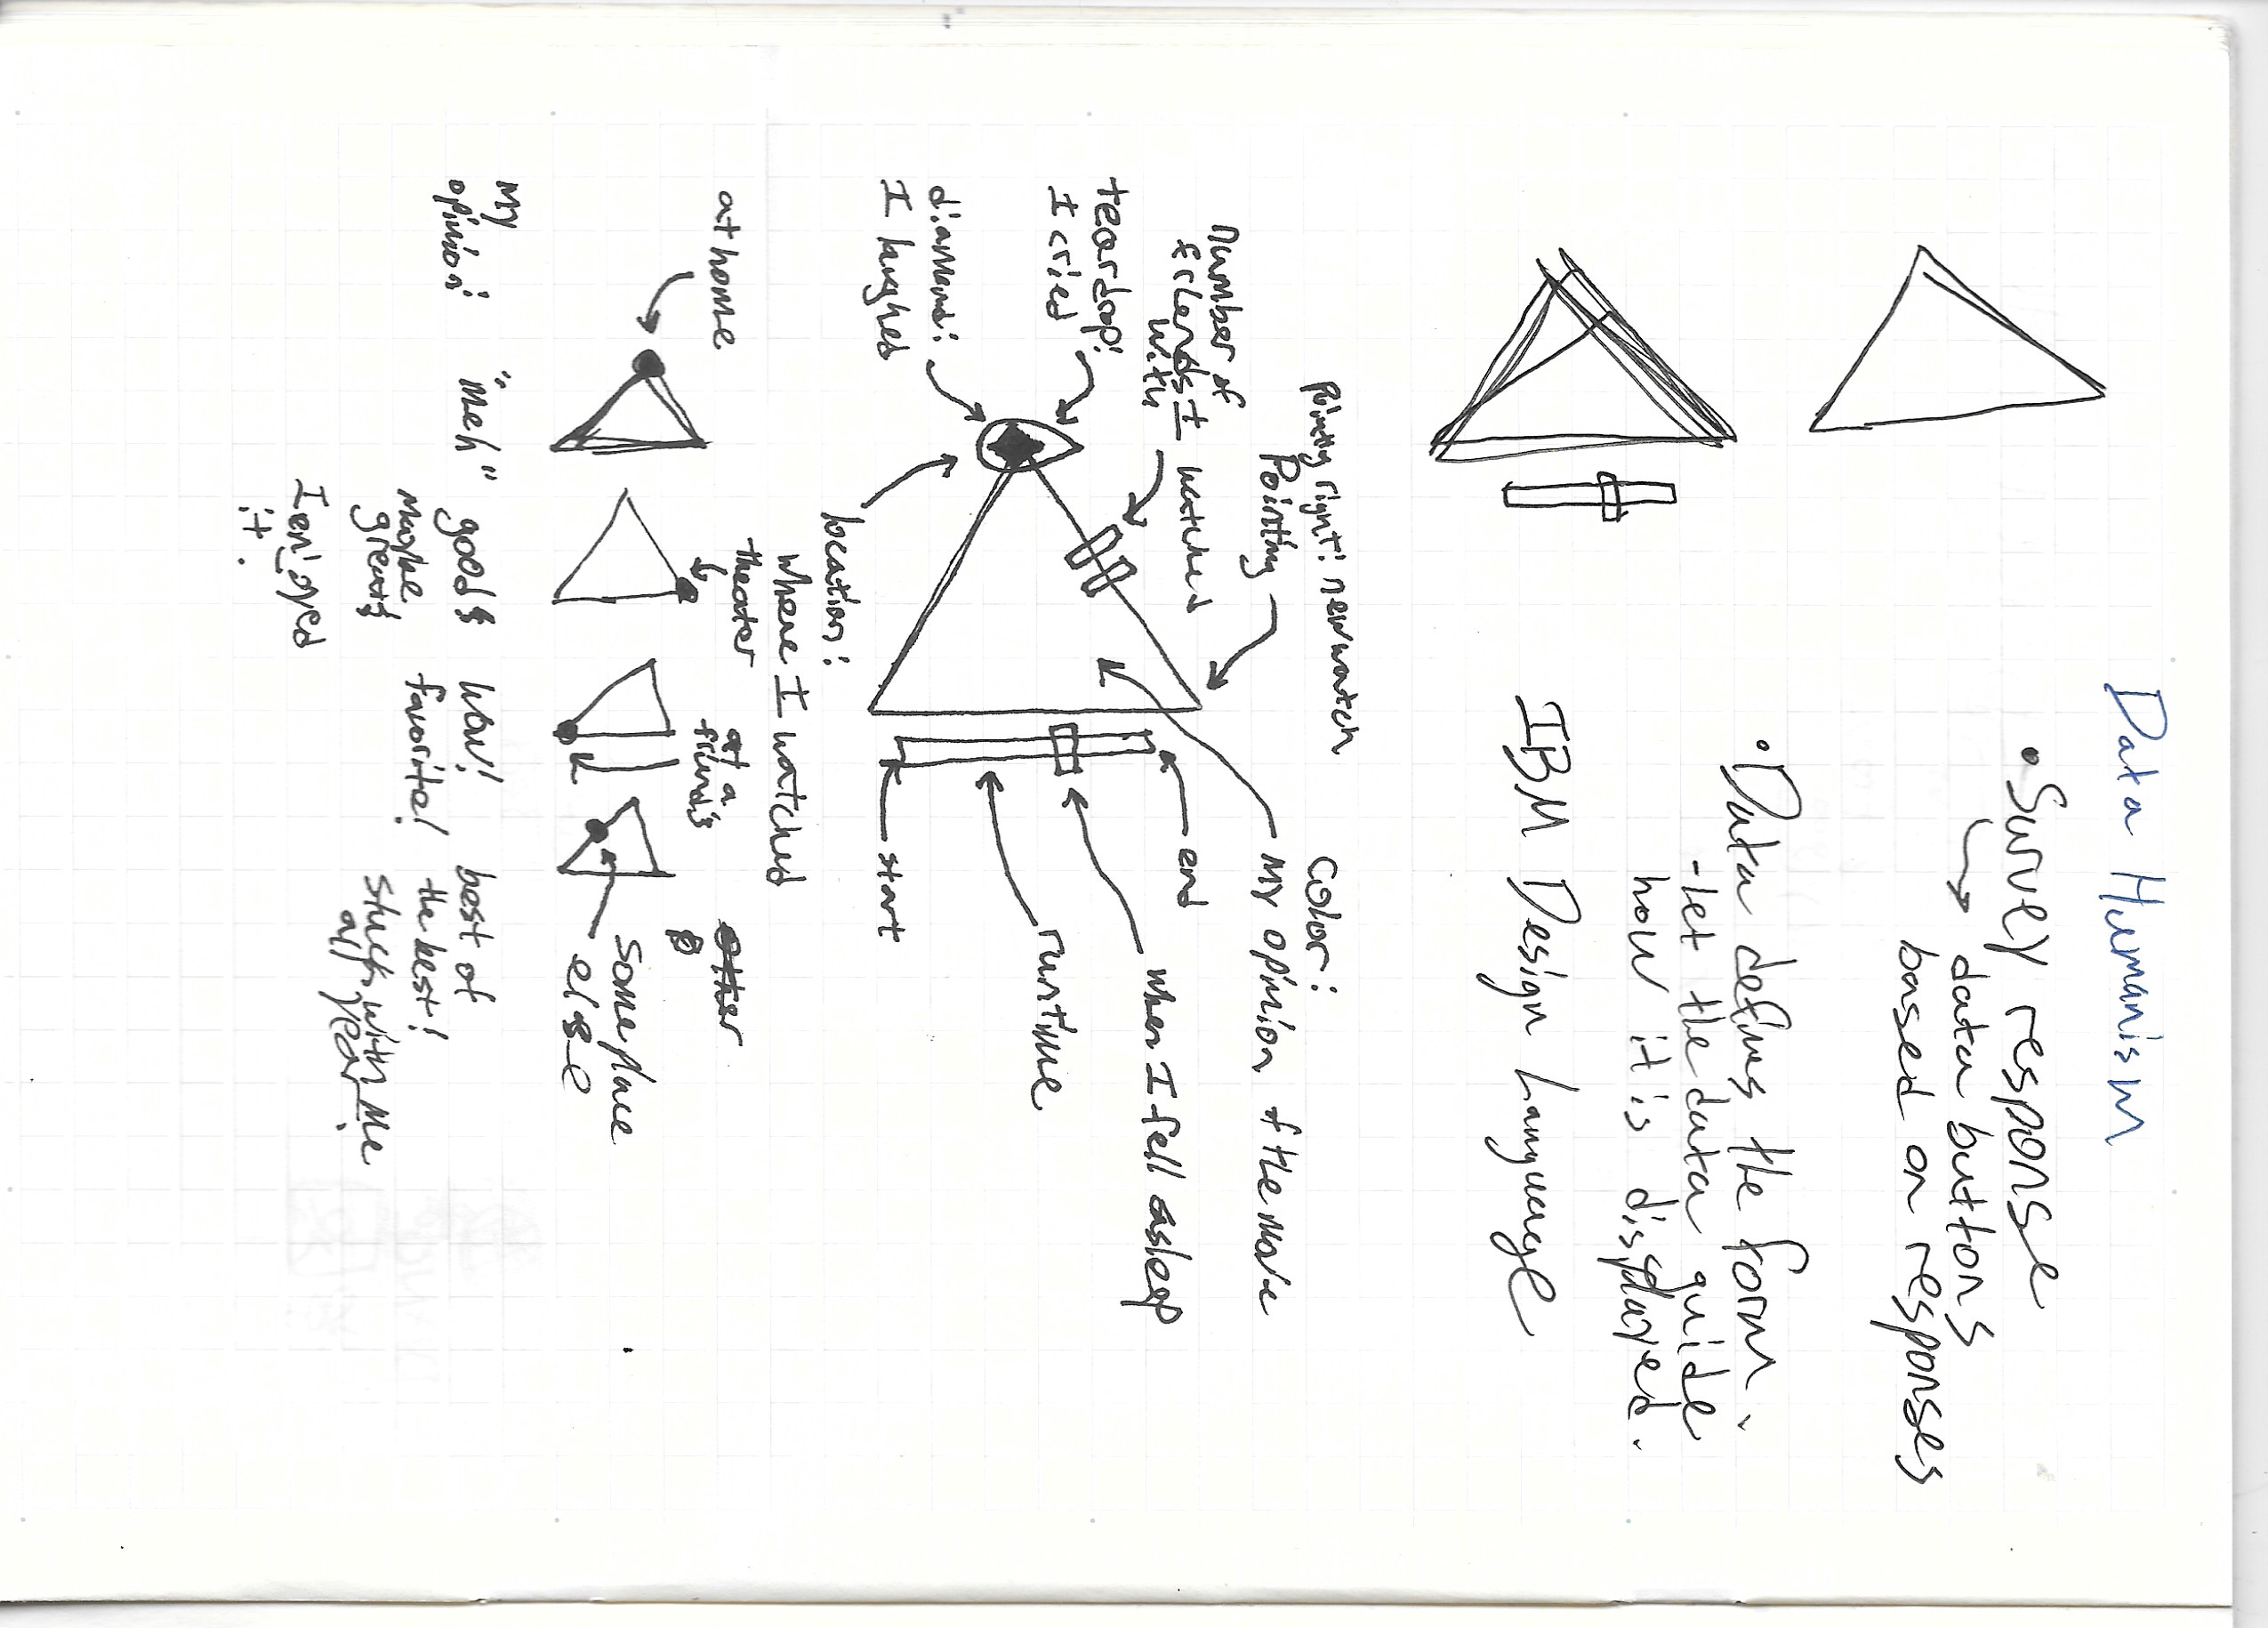 Data Humanism
• Survey response
→ data buttons
based on responses
• Data defines the form.
- let the data guide
how it is displayed.
IBM Design Language
Pointy right: new watch
Pointing
Color:
My opinion of the movie
Number of
friends I watched
with
teardrop:
I cried
diamond:
I laughed
end
when I fell asleep
runtime
start
location:
where I watched
at home
theater
at a
friend's
other
someplace
else
My
opinion:
"meh"
good &
maybe
great &
I enjoyed
it.
wow!
favorite!
best of
the best!
stuck with me
all year.